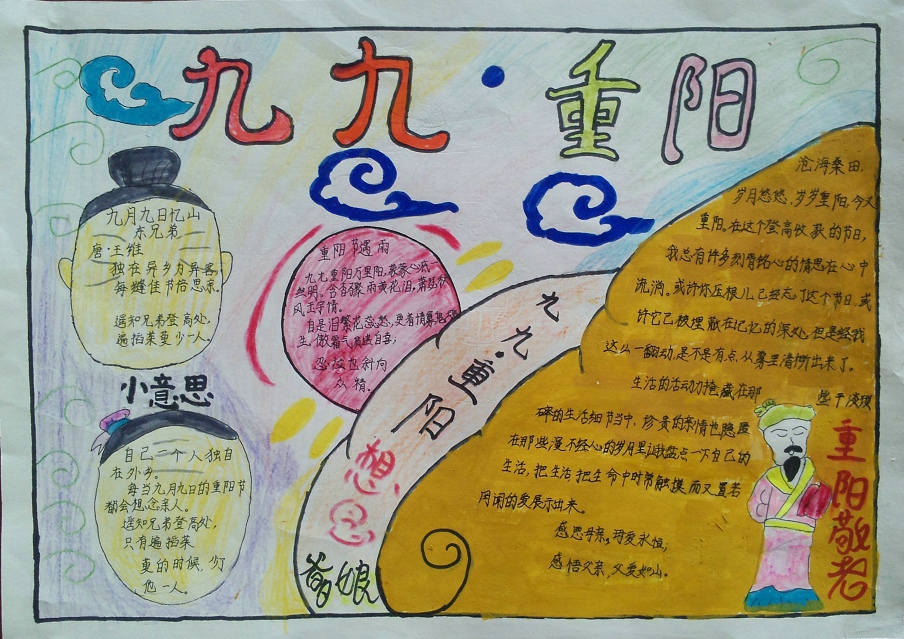 九九·重阳
九月九日忆山
东兄弟
唐·王维
独在异乡为异客,
每缝佳节倍思亲。
遥知兄弟登高处,
遍插茱更少一人。
小意思
自己一个人独自
在外乡。
每当九月九日的重阳节
都会想念亲人。
遥知兄弟登高处,
只有遍插茱
更的时候,少了
他一人。
重阳节遇雨
九九重阳万里阳,
九九·重阳
想思
爹娘
沧海桑田,
岁月悠悠,岁岁重阳,今又
重阳。在这个登高饮秋的节日,
我总有许多刻骨铭心的情思在心中
流淌。或许你压根儿已经忘了这个节日,或
许它已被埋藏在记忆的深处,但是经我
这么一翻动,是不是有点从雾里清晰出来了。
生活的活动力掩藏在那
些平淡琐
碎的生活细节当中,珍贵的亲情也隐匿
在那些漫不经心的岁月里让我盘点一下自己的
生活,把生活把生命中时常触摸而又置若
用闲的爱展示出来。
感恩母亲,母爱永恒;
感悟父亲,父爱如山。
重阳敬老